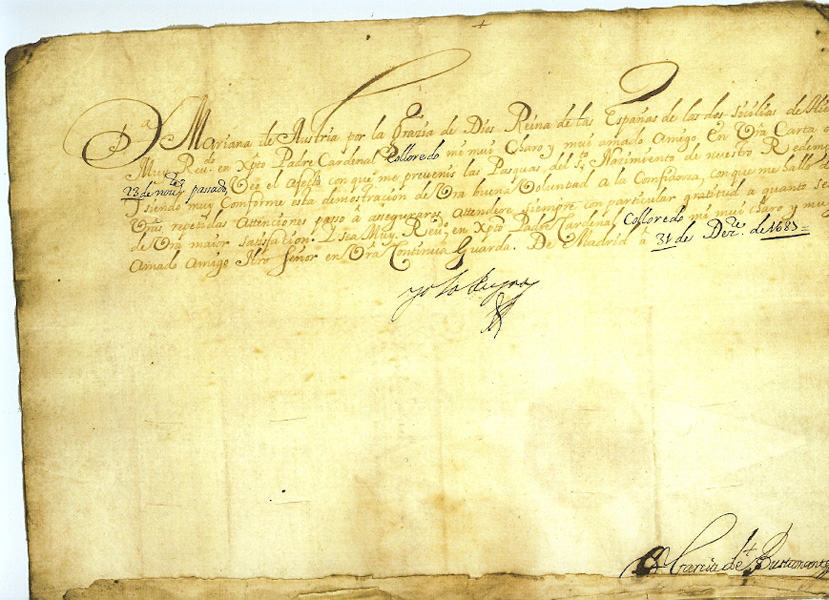 D.ª Mariana de Austria por la Grazia de Dios Reina de las Españas de las dos Sicilias de
Muy Reu.do en Xpto Padre Cardenal Colloredo mi mui Charo y mui amado Amigo. En Vrā Carta
23 de nou.re passado Veo el afecto con que me preuenis las Pasquas del S.to Nazimiento de nuestro Redem
Y siendo muy Conforme esta demostración de Vrā buena Voluntad A la Confidenza, con que me hallo
Vras repetidas Attenciones passo à asseguraros, attenderè siempre con particular gratitud a quanto
de Vra maior Satisfacion. Y sea Muy Reu.do en Xpto Padre Cardenal Colloredo mi mui charo y muy
Amado Amigo Nro Señor en Vrā Continuā Guarda. De Madrid à 31 de Dez.re de 1683=
yo la Reyna
Garcia de Bustamante